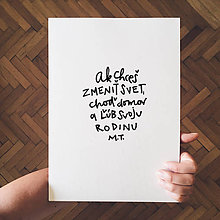 Ak chceš
ZMENIŤ SVET,
choď domov
a ĽÚB SVOJU
RODINU
M.T.